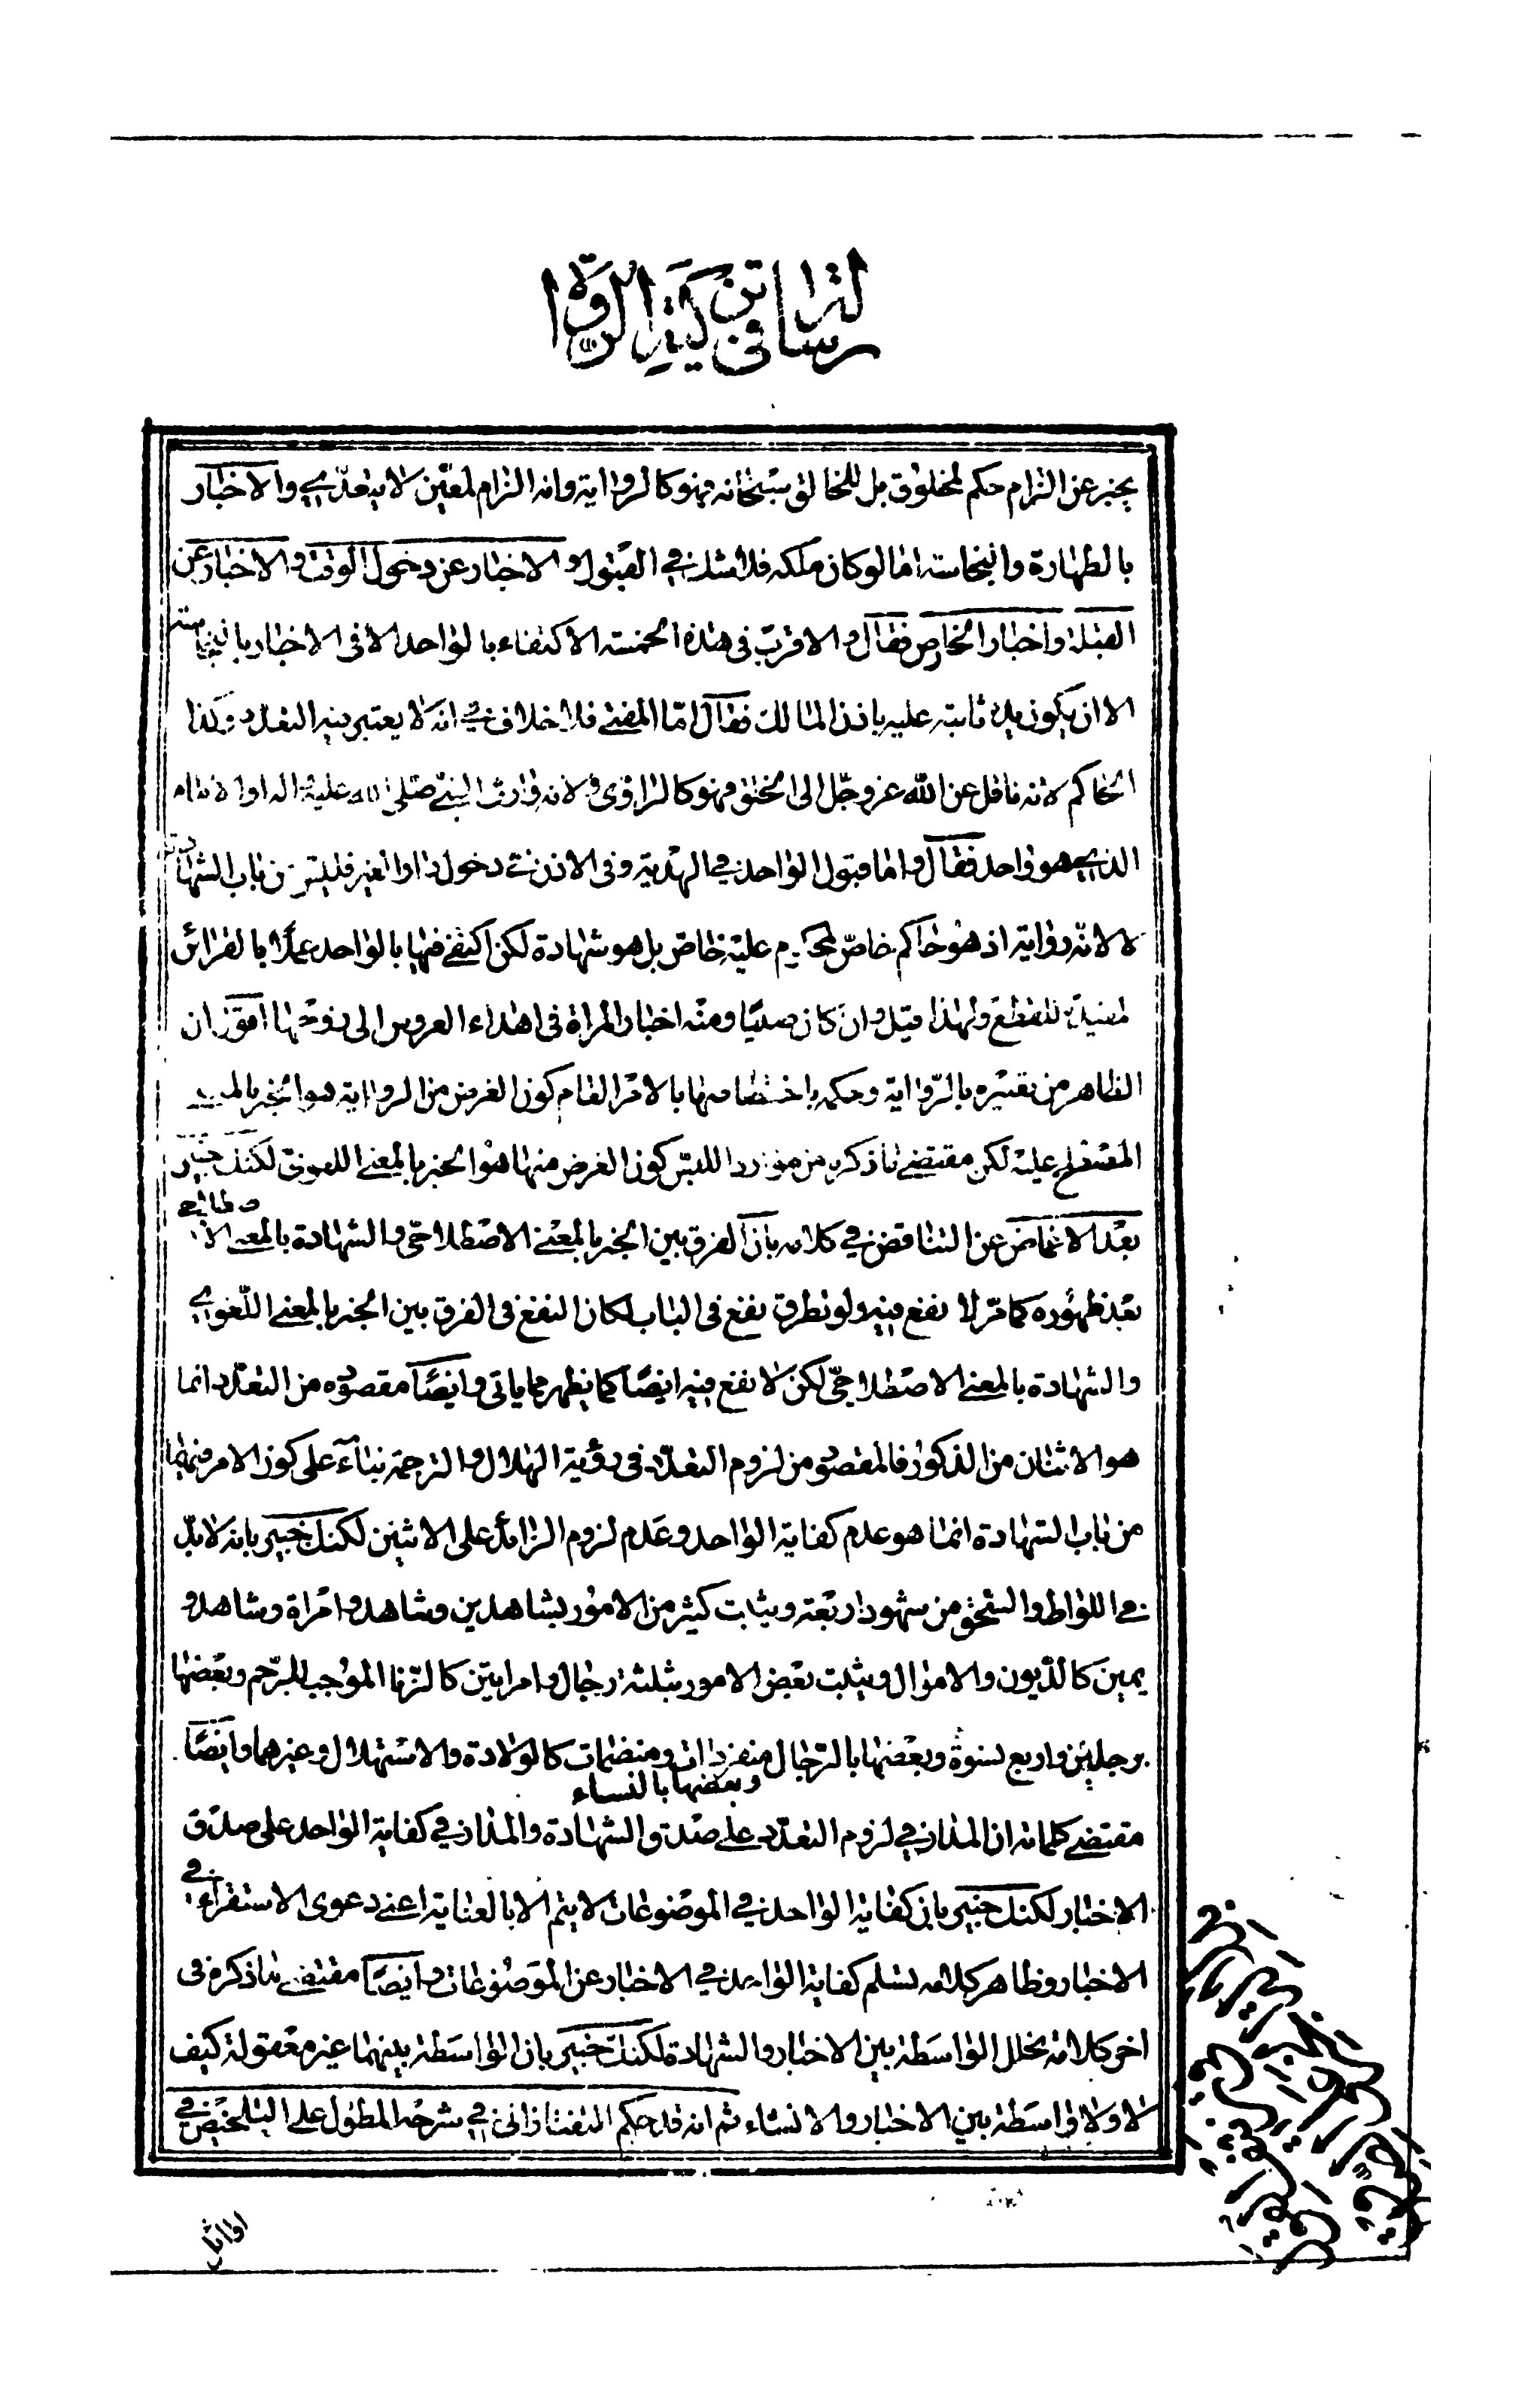 رسالة في تزكية الرواة
يخبر عن الزام حكم لمخلوق بل للخالق سبحانه فهو كالرواية وانه الزام لمعين لا يتعدى والاخبار
بالطهارة والنجاسة اما لو كان ملكه فلا شك في القبول والاخبار عن دخول الوقت والاخبار عن
القبلة واخبار الخارص فقال والاقرب في هذه الخمسة الاكتفاء بالواحد الا في الاخبار بالنجاسة
الا ان يكون يده ثابتة عليه باذن المالك فقال اما المفتي فلا خلاف في انه لا يعتبر فيه التعدد وكذا
الحاكم لانه ناقل عن الله عز وجل الى الخلق فهو كالراوى ولانه وارث النبي صلى الله عليه واله او الامام
الذي هو واحد فقال واما قبول الواحد في الهدية وفى الاذن في دخول دار الغير فليس من باب الشهادة
لا لانه رواية اذ هو حاكم خاص لمحكوم عليه خاص بل هو شهادة لكن اكتفى فيها بالواحد عملا بالقرائن
المفيدة للقطع ولهذا قيل وان كان صبيا ومنه اخبار المراة فى اهداء العروس الى زوجها اقول ان
الظاهر من تفسيره بالرواية وحكمه باختصاصها بالامر العام كون الغرض من الرواية هو الخبر بالمعنى
المصطلح عليه لكن مقتضى ما ذكره من موارد اللبس كون الغرض منها هو الخبر بالمعنى اللغوى لكنك خبير
بعد الاغماض عن التناقض في كلامه بان الفرق بين الخبر بالمعنى الاصطلاحى والشهادة بالمعنى الاصطلاحي
بعد ظهوره كما مر لا نفع فيه ولو تطرق نفع فى الباب لكان النفع فى الفرق بين الخبر بالمعنى اللغوي
والشهادة بالمعنى الاصطلاحى لكن لا نفع فيه ايضا كما يظهر مما ياتى وايضا مقصوده من التعدد انما
هو الاثنان من الذكور فالمقصود من لزوم التعدد فى رؤية الهلال والترجمة بناء على كون الامر فيهما
من باب الشهادة انما هو عدم كفاية الواحد وعدم لزوم الزائد على الاثنين لكنك خبير بانه لا بد
في اللواط والسحق من شهود اربعة ويثبت كثير من الامور بشاهدين وشاهد وامراة وشاهد و
يمين كالديون والاموال ويثبت بعض الامور بثلثة رجال وامراتين كالزنا الموجب للرجم وبعضها
برجلين واربع نسوة وبعضها بالرجال وبعضها بالنساء منفردات ومنضمات كالولادة والاستهلال وغيرهما وايضا
مقتضى كلماته ان المدار في لزوم التعدد على صدق الشهادة والمدار في كفاية الواحد على صدق
الاخبار لكنك خبير بان كفاية الواحد في الموضوعات لا يتم الا بالعناية اعنى دعوى الاستقراء في
الاخبار وظاهر كلامه تسلم كفاية الواحد في الاخبار عن الموضوعات وايضا مقتضى ما ذكره فى
اخر كلامه تخلل الواسطة بين الاخبار والشهادة لكنك خبير بان الواسطة بينهما غير معقولة كيف
لا ولا واسطة بين الاخبار والانشاء ثم انه قد حكم التفتازانى في شرحه المطول على التلخيص في
اوائل